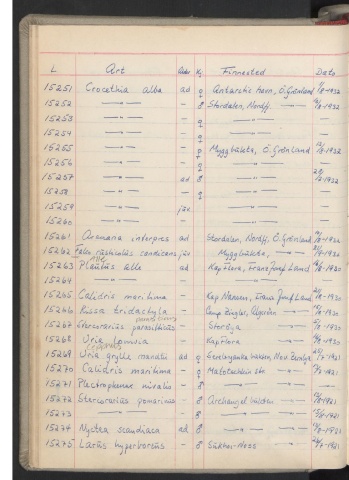 L Art Alder Kj Finnested Dato
15251 Crocethia alba ad ♀ Antarctic havn, Ö. Grönland 1932
15252 —"— — ♂ Stordalen, Nordfj. —"— 1932
15253 —"— — ♀ —"— —
15254 —"— — ♀ —"— —
15255 —"— — ♀ Myggbukta, Ö. Grönland 1932
15256 —"— — ♀ —"— —
15257 —"— ad ♂ —"— 1932
15258 —"— — ♀ —"— —
15259 —"— juv —"— —
15260 —"— — —"— —
15261 Arenaria interpres ad Stordalen, Nordfj. Ö. Grönland 1932
15262 Falco rusticolus candicans juv Myggbukta, —"— 1932
15263 Plautus alle ad Kap Flora, Franz Josef Land 1930
15264 —"— — —"— —
15265 Calidris maritima — Kap Nansen, Franz Josef Land 1930
15266 Rissa tridactyla — 1930
15267 Stercorarius parasiticus — Storöya 1930
15268 Uria lomvia — Kap Flora 1930
15269 Uria grylle mandti ad ♀ 1921
15270 Calidris maritima — ♀ Matotschkin Shar 1921
15271 Plectrophenax nivalis — ♂ —"— —
15272 Stercorarius pomarinus — ♂ Archangel 1921
15273 —"— — ♂ —"— 1921
15274 Nyctea scandiaca ad ♂ —"— 1921
15275 Larus hyperboreus — ♂ Sukhoi-Noss 1921